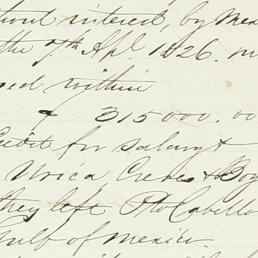 thout interest, by Mex
the 7th Apl. 1826. 
ed within
$ 315000.00
Credit for salary &
Urica Crews & Boy
they left Pto Cavello
Gulf of Mexico.